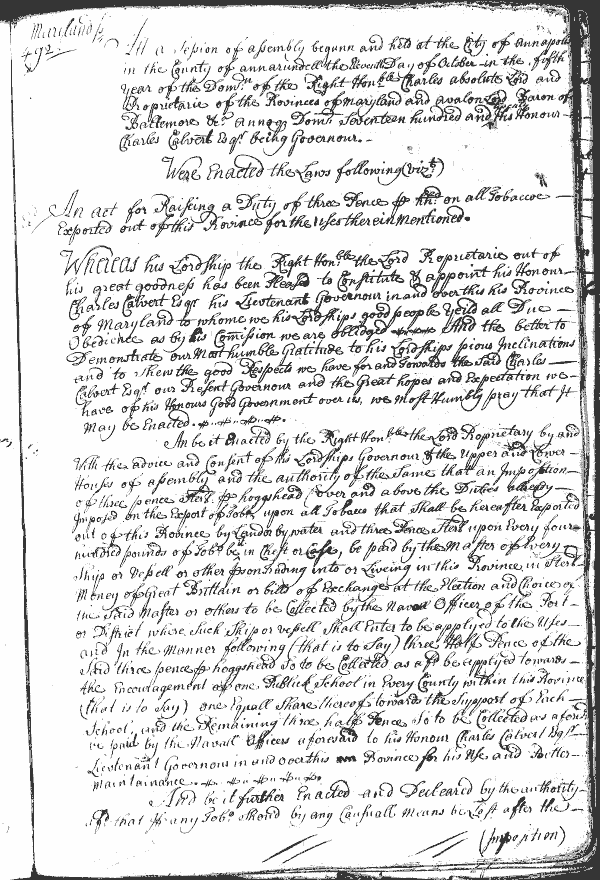 Mariland ss
492:
At a Session of assembly begunn and held at the City of annapolis
in the County of annarundell the Eleventh Day of October in the fifth
year of the Domn of the Right Honble Charles absolute Lord and
Proprietarie of the Provinces of Maryland and avalon Lord Baron of
Baltemore &c annoq Domi Seventeen hundred and his Honour
Charles Calvert Esqr being Governour.
Were Enacted the Laws following (vizt)
An act for Raising a Duty of three Pence p hhd on all Tobaccoe
Exported out of this Province for the Uses therein Mentioned.
Whereas his Lordship the Right Honble the Lord Proprietarie out of
his great goodness has been Pleased to Constitute & appoint his Honour
Charles Calvert Esqr his Lieutenant Governour in and over this his Province
of Maryland to whome we his Lordships good people Yeild all Due
Obedience as by his Comission we are obliged And the better to
Demonstrate our Most humble Gratitude to his Lordships pious Inclinations
and to Shew the good Respects we have for and towards the Said Charles
Calvert Esqr our Present Governour and the Great hopes and Expectation we
have of his Honours Good Government over us, we Most Humbly pray that It
May be Enacted.
An be it Enacted by the Right Honble the Lord Proprietary by and
With the advice and Consent of his Lordships Governour & the upper and Lower
Houses of assembly and the authority of the Same that an Imposition
of three pence Sterl p hoggshead over and above the Duties already
Imposed on the Export of Tobo upon all Tobacco that Shall be hereafter Exported
out of this Province by Land or by water and three Pence Sterl upon Every four
hundred pounds of Tobo in Chest or Case, be paid by the Master of Every
Ship or Vessell or other pson trading into or Liveing in this Province in Sterl
Money of Great Brittain or bills of Exchange at the Election and Choice of
the Said Master or others to be Collected by the Navall Officer of the Port
or District where Such Ship or vessell Shall Enter to be applyed to the Uses
and In the Manner following (that is to Say) three Half Pence of the
Said three pence p hoggshead So to be Collected as afd be applyed towards
the Encouragement of one Publick School in Every County within this Province
(that is to Say) one Equall Share thereof towards the Support of Each
School, and the Remaining three half Pence So to be Collected as afors
be paid by the Navall Officers aforesaid to his Honour Charles Calvert Esqr
Lieutenant Governour in and over this Province for his Use and Better
Maintainance.
And be it further Enacted and Decleared by the authority
afd that if any Tobo should by any Casuall Means be Lost after the
(Imposition)